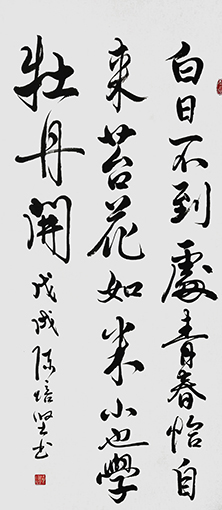 白日不到處青春恰自
来苔花如米小也學
牡丹開
戊戌 陈培坚书